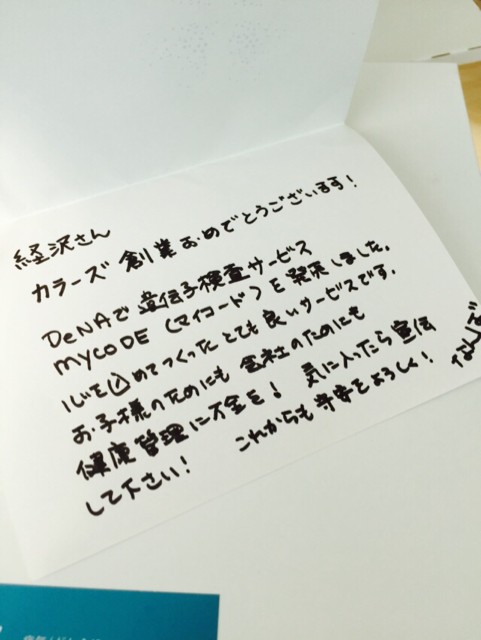 経沢さん
カラーズ 創業おめでとうございます!
DeNAで 遺伝子検査サービス
MYCODE (マイコード)を発売しました。
心を込めてつくった とても良いサービスです。
お子様のためにも 会社のためにも
健康管理に万全を! 気に入ったら宣伝
して下さい! これからも よろしく!